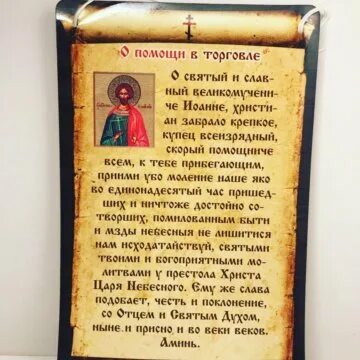 О ПОМОЩИ В ТОРГОВЛЕ
О святый и слав-
ный великомучени-
че Иоанне, христи-
ан забрало крепкое,
купец всеизрядный,
скорый помощниче
всем, к тебе прибегающим,
приими убо моление наше яко
во единонадесятый час пришед-
ших и ничтоже достойно со-
творших, помилованным быти
и мзды небесныя не лишитися
нам исходатайствуй, святыми
твоими и богоприятными мо-
литвами у престола Христа
Царя Небесного. Ему же слава
подобает, честь и поклонение,
со Отцем и Святым Духом,
ныне и присно и во веки веков.
Аминь.